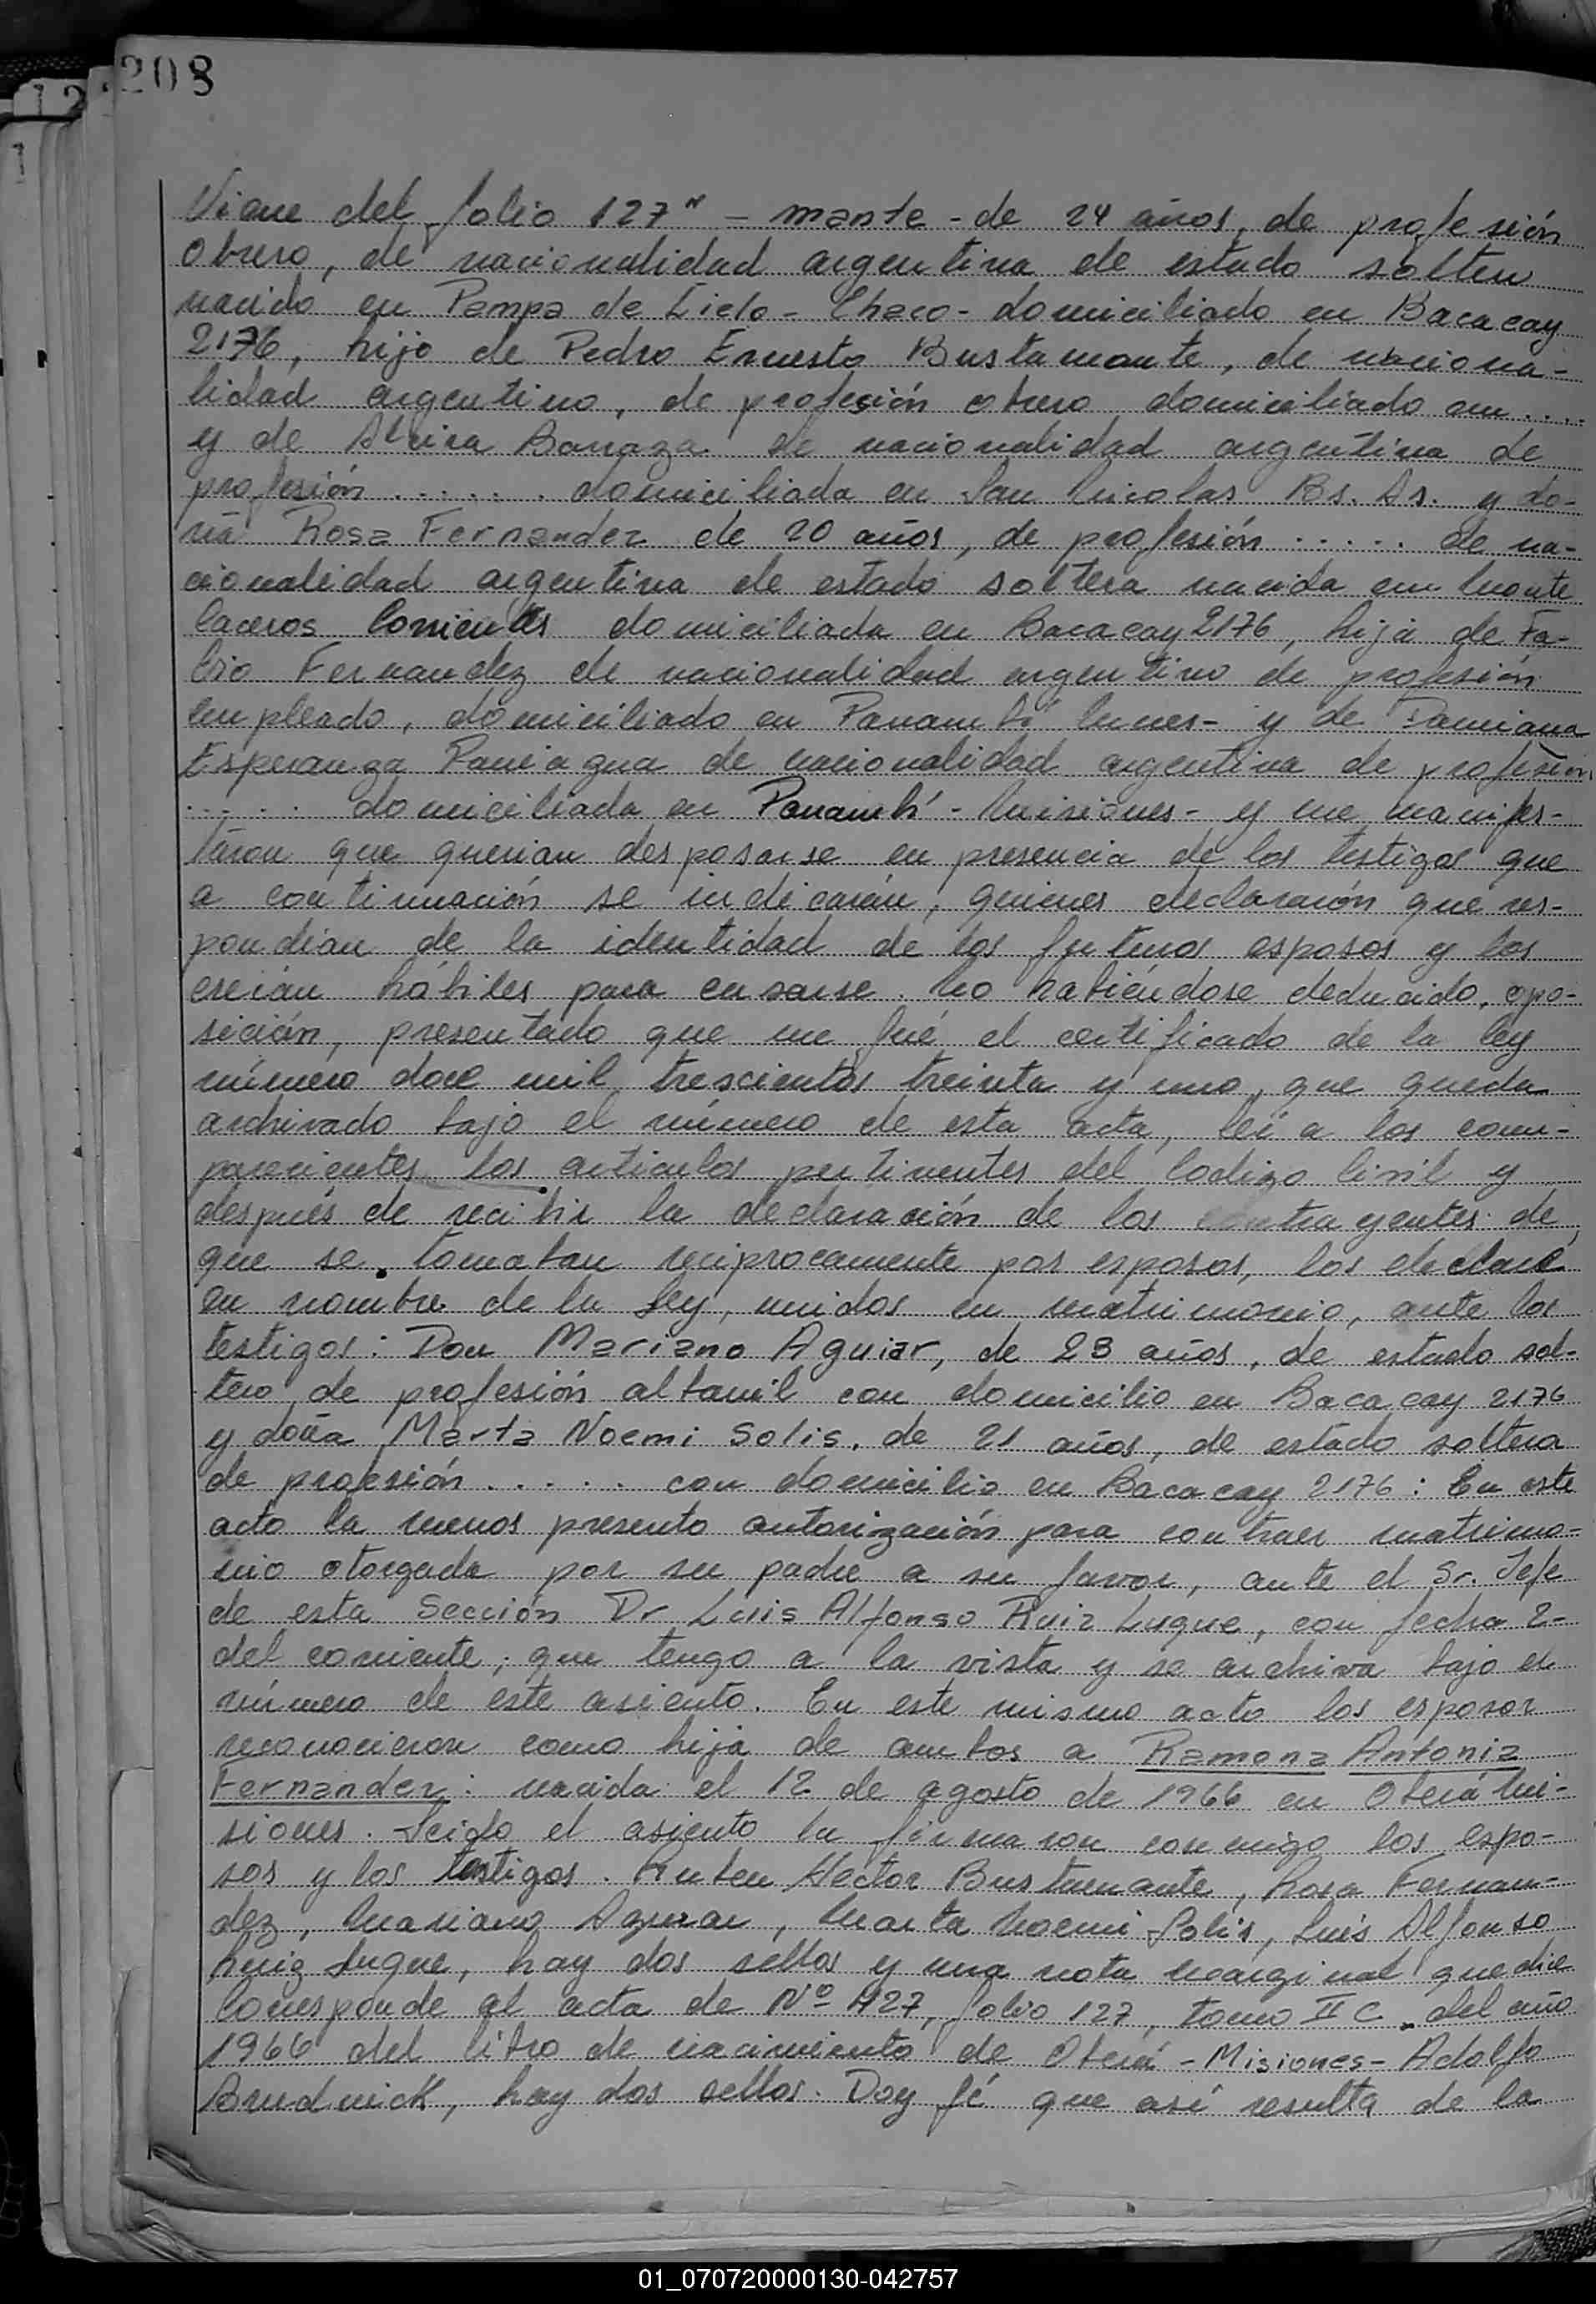 208
Viene del folio 127" - mante - de 24 años, de profesión
obrero, de nacionalidad argentina de estado soltero
nacido en Pampa de Cielo - Chaco - domiciliado en Bacacay
2176, hijo de Pedro Ernesto Bustamante, de naciona-
lidad argentino, de profesión obrero domiciliado en ....
y de Alcira Barraza de nacionalidad argentina de
profesión ...... domiciliada en San Nicolas Bs. As. y do-
ña Rosa Fernandez de 20 años, de profesión ..... de na-
cionalidad argentina de estado soltera nacida en Monte
Caceros Corrientes domiciliada en Bacacay 2176, hija de Fa-
bio Fernandez de nacionalidad argentino de profesión
empleado, domiciliado en Panambí - y de Damiana
Esperanza Paniagua de nacionalidad argentina de profesión
..... domiciliada en Panambí - Misiones - y me manifes-
taron que querian desposarse en presencia de los testigos que
a continuación se indicarán, quienes declararón que res-
pondian de la identidad de los futuros esposos y los
creián hábiles para casarse. No habiéndose deducido, opo-
sición, presentado que me fué el certificado de la ley
número doce mil trescientos treinta y uno, que queda
archivado bajo el número de esta acta, leí a los com-
parecientes los articulos pertinentes del Codigo Civil y
después de recibir la declaración de los contrayentes de
que se tomaban reciprocamente por esposos, los declaré
en nombre de la Ley, unidos en matrimonio, ante los
testigos: Don Mariano Aguiar, de 23 años, de estado sol-
tero de profesión albañil con domicilio en Bacacay 2176
y doña Marta Noemi Solis, de 21 años, de estado soltera
de profesión ..... con domicilio en Bacacay 2176: En este
acto la menos presento autorización para contraer matrimo-
nio otorgada por su padre a su favor, ante el Sr. Jefe
de esta Sección Dr Luis Alfonso Ruiz Luque, con fecha 2-
del corriente, que tengo a la vista y se archiva bajo el
número de este asiento. En este mismo acto los esposos
reconocieron como hija de ambos a Ramona Antonia
Fernandez: nacida el 12 de agosto de 1966 en Oberá Mi-
siones. Leido el asiento la firmaron conmigo los espo-
sos y los testigos. Ruben Hector Bustamante, Rosa Fernan-
dez, Mariano Aguiar, Marta Noemi Solis, Luis Alfonso
Ruiz Luque, hay dos sellos y una nota marginal que dice
Corresponde al acta de Nº 427, folio 127, tomo II C. del año
1966 del libro de nacimiento de Oberá - Misiones - Adolfo
Brudnick, hay dos sellos. Doy fé que así resulta de la
01_070720000130-042757